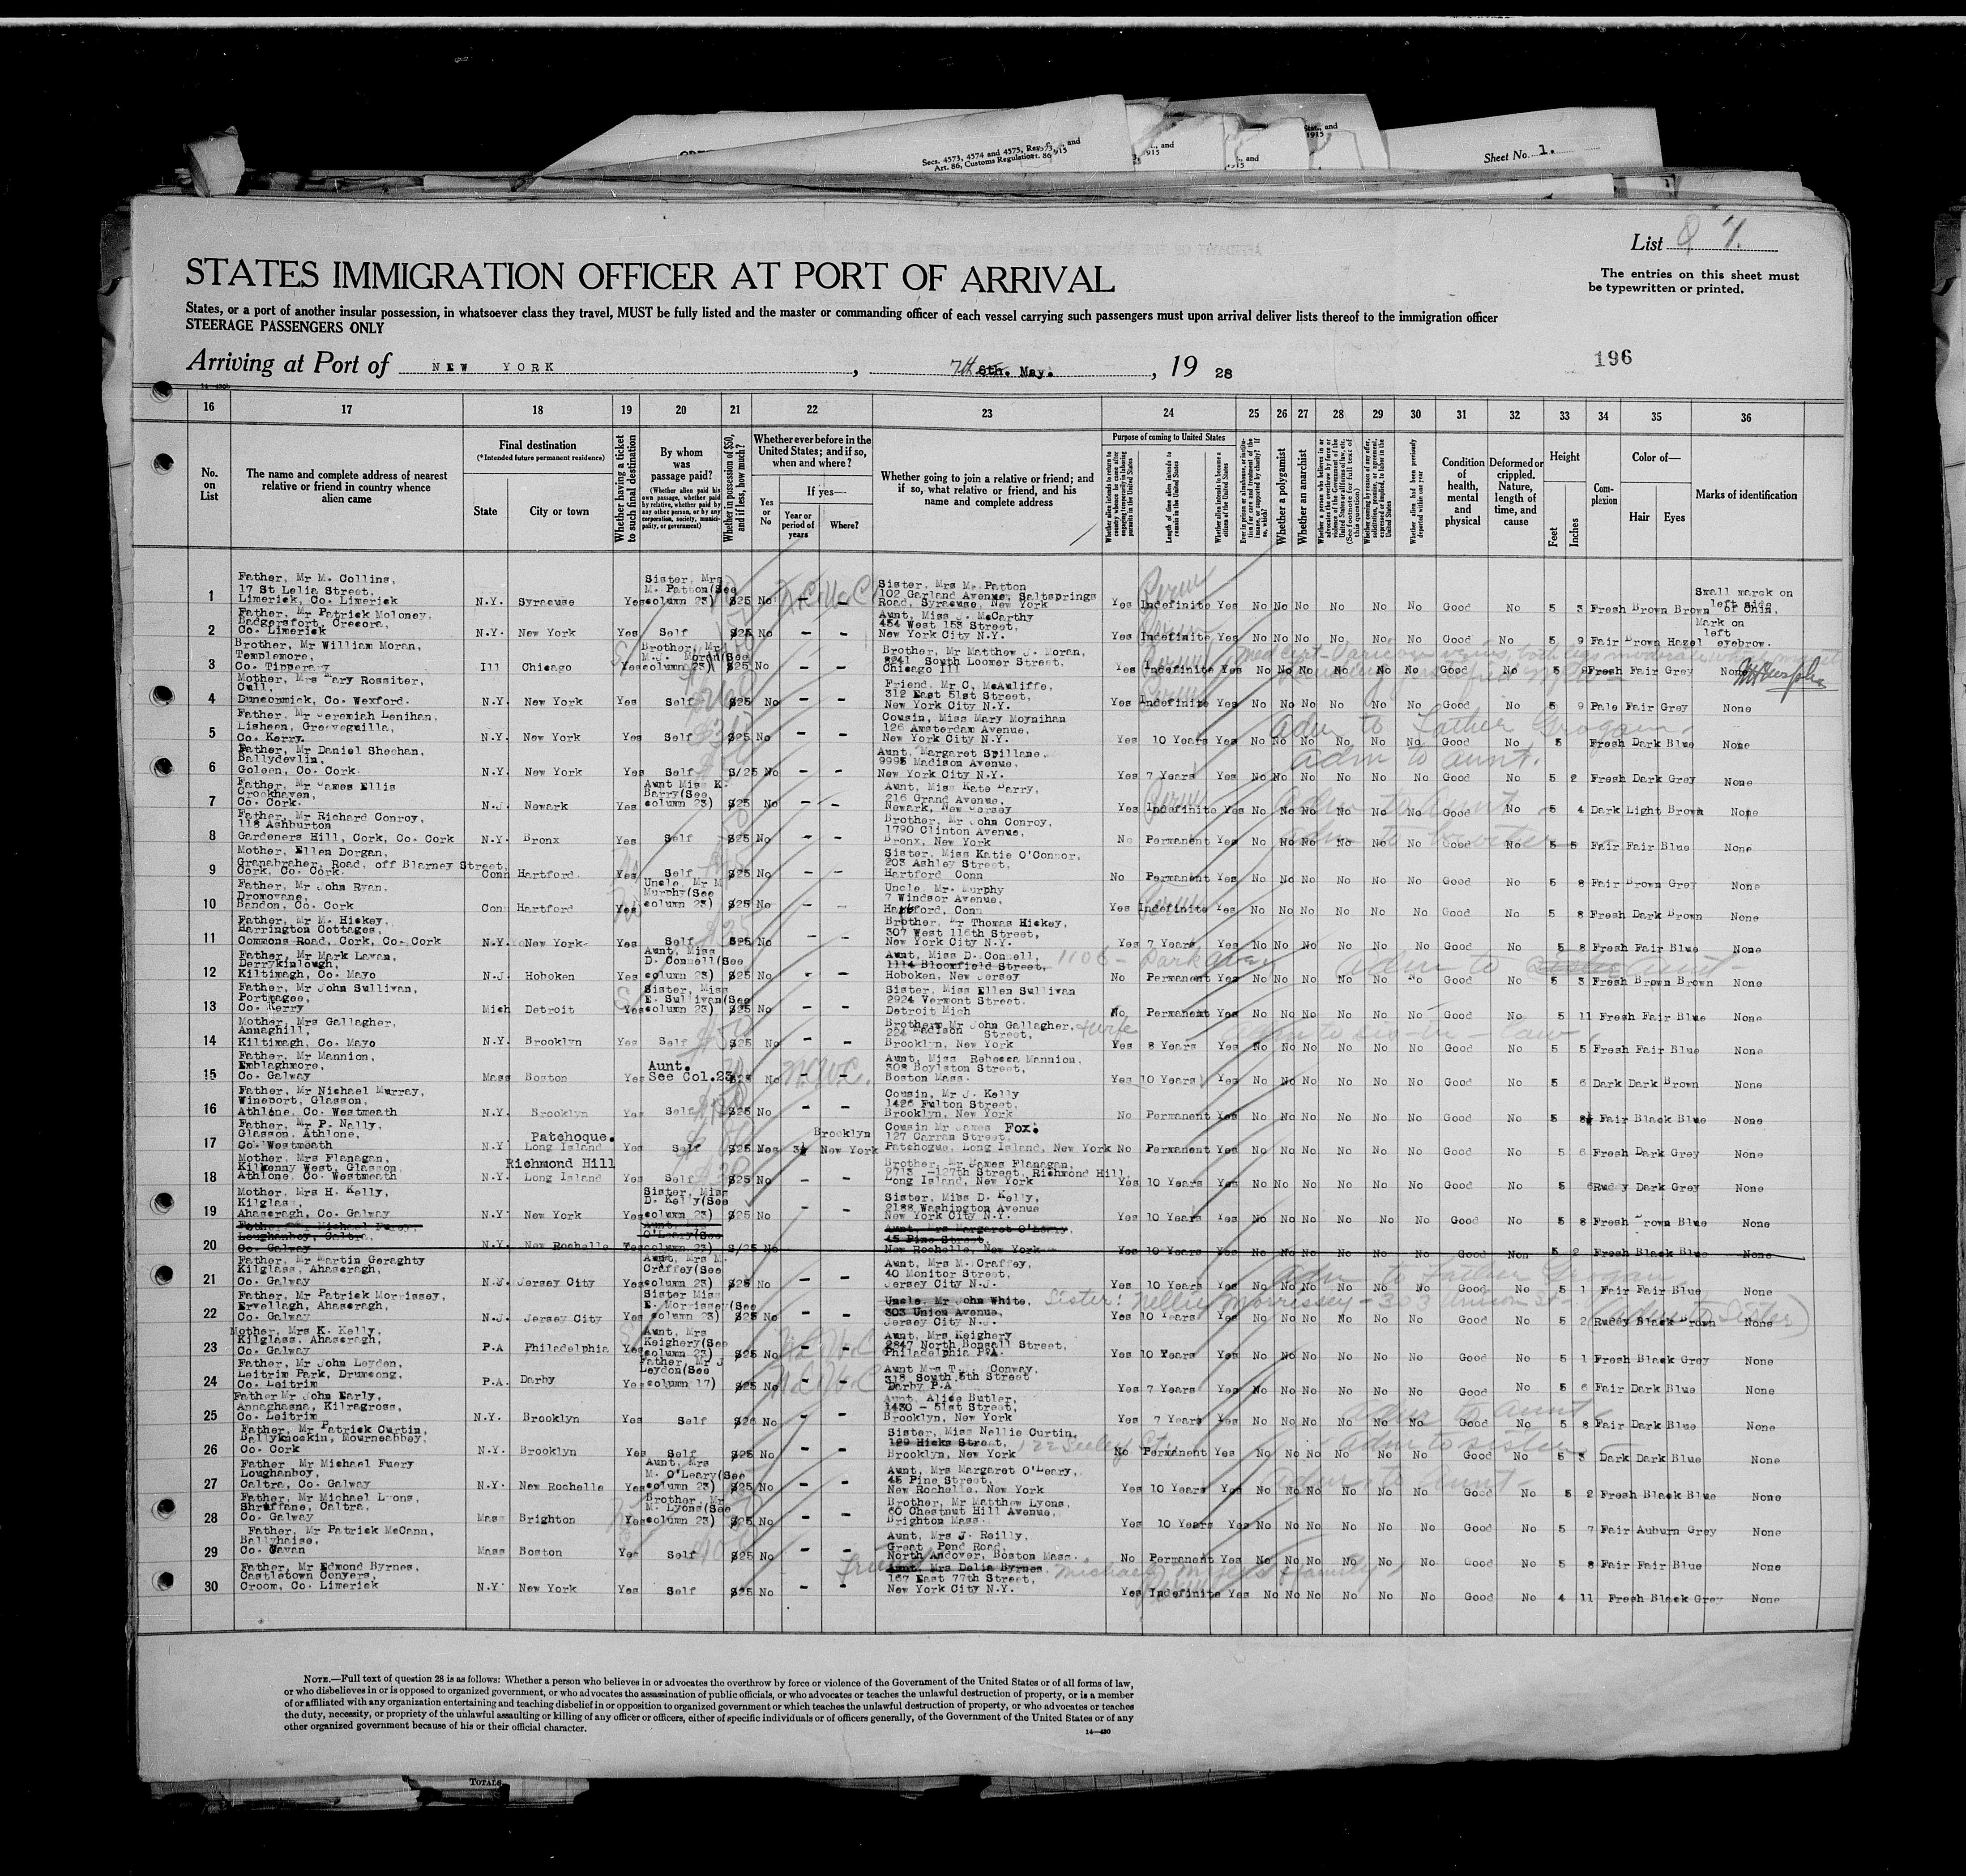 Secs. 4573, 4574 and 4575, Rev. S., and
Art. 86, Customs Regulations 1915
Sheet No. 1.
List 7.
The entries on this sheet must
be typewritten or printed.
STATES IMMIGRATION OFFICER AT PORT OF ARRIVAL
States, or a port of another insular possession, in whatsoever class they travel, MUST be fully listed and the master or commanding officer of each vessel carrying such passengers must upon arrival deliver lists thereof to the immigration officer
STEERAGE PASSENGERS ONLY
Arriving at Port of NEW YORK, 7th 6th. May., 1928
196
16 17 18 19 20 21 22 23 24 25 26 27 28 29 30 31 32 33 34 35 36
No. on List
The name and complete address of nearest relative or friend in country whence alien came
Final destination
(*Intended future permanent residence)
State
City or town
Whether having a ticket to such final destination
By whom was passage paid?
(Whether alien paid his own passage, whether paid by relative, whether paid by any other person, or by any corporation, society, municipality, or government)
Whether in possession of $50, and if less, how much?
Whether ever before in the United States; and if so, when and where?
Yes or No
If yes—
Year or period of years
Where?
Whether going to join a relative or friend; and if so, what relative or friend, and his name and complete address
Purpose of coming to United States
Length of time alien intends to remain in the United States
Whether alien intends to become a citizen of the United States
Whether a polygamist
Whether an anarchist
Condition of health, mental and physical
Deformed or crippled. Nature, length of time, and cause
Height
Feet
Inches
Complexion
Color of—
Hair
Eyes
Marks of identification
1 Father, Mr M. Collins, 17 St Lelia Street, Limerick, Co. Limerick N.Y. Syracuse Yes Sister, Mrs M. Patton(See column 23) $25 No - - Sister, Mrs M. Patton 102 Garland Avenue, Saltsprings Road, Syracuse, New York Yes Indefinite Yes No No No No No No Good No 5 3 Fresh Brown Brown Small marck on left side of Chin,
2 Father, Mr Patrick Moloney, Badgersfort, Crecora, Co. Limerick N.Y. New York Yes Self $25 No - - Aunt, Miss J. McCarthy 454 West 153 Street, New York City N.Y. Yes Indefinite Yes No No No No No No Good No 5 9 Fair Brown Hazel Mark on left eyebrow.
3 Brother, Mr William Moran, Templemore, Co. Tipperary Ill Chicago Yes Brother, Mr M.J. Moran(See column 23) $25 No - - Brother, Mr Matthew J. Moran, 8241 South Loomer Street, Chicago Ill Yes Indefinite Yes No No No No No No Good No 5 9 Fresh Fair Grey None
4 Mother, Mrs Mary Rossiter, Cull, Duncormick, Co. Wexford. N.Y. New York Yes Self $25 No - - Friend, Mr C. McAuliffe, 312 East 51st Street, New York City N.Y. Yes Indefinite Yes No No No No No No Good No 5 9 Pale Fair Grey None
5 Father, Mr Jeremiah Lenihan, Lisheen, Greeveguilla, Co. Kerry. N.Y. New York Yes Self $25 No - - Cousin, Miss Mary Moynihan 126 Amsterdam Avenue, New York City N.Y. Yes 10 Years Yes No No No No No No Good No 5 Fresh Dark Blue None
adm to Father Grogan.
6 Father, Mr Daniel Sheehan, Ballydevlin, Goleen, Co. Cork. N.Y. New York Yes Self $/25 No - - Aunt, Margaret Spillane, 9995 Madison Avenue, New York City N.Y. Yes 7 Years Yes No No No No No No Good No 5 2 Fresh Dark Grey None
adm to aunt.
7 Father, Mr James Ellis Crookhaven, Co. Cork. N.J. Newark Yes Aunt Miss K. Barry(See column 23) $25 No - - Aunt, Miss Kate Barry, 216 Grand Avenue, Newark, New Jersey Yes Indefinite Yes No No No No No No Good No 5 4 Dark Light Brown None
adm to Aunt
8 Father, Mr Richard Conroy, 118 Ashburton Gardeners Hill, Cork, Co. Cork N.Y. Bronx Yes Self $25 No - - Brother, Mr John Conroy, 1790 Clinton Avenue, Bronx, New York No Permanent Yes No No No No No No Good No 5 5 Fair Fair Blue None
adm to brother
9 Mother, Ellen Dorgan, Granabraher, Road, off Blarney Street, Cork, Co. Cork. Conn Hartford. Yes Self $25 No - - Sister, Miss Katie O'Connor, 203 Ashley Street, Hartford Conn No Permanent Yes No No No No No No Good No 5 8 Fair Brown Grey None
10 Father, Mr John Ryan, Dromovane, Bandon, Co. Cork Conn Hartford Yes Uncle, Mr M Murphy(See column 23) $25 No - - Uncle, Mr. Murphy 7 Windsor Avenue, Hartford, Conn Yes Indefinite Yes No No No No No No Good No 5 8 Fresh Dark Brown None
11 Father, Mr M. Hickey, Harrington Cottages, Commons Road, Cork, Co. Cork N.Y. New York Yes Self $25 No - - Brother, Mr Thomas Hickey, 307 West 116th Street, New York City N.Y. Yes 7 Years Yes No No No No No No Good No 5 8 Fresh Fair Blue None
12 Father, Mr Mark Lavan, Derrykinlough, Kiltimagh, Co. Mayo N.J. Hoboken Yes Aunt, Miss D. Connell(See column 23) $25 No - - Aunt, Miss D. Connell, 1114 Bloomfield Street, Hoboken, New Jersey No Permanent Yes No No No No No No Good No 5 3 Fresh Brown Brown None
1106 - Park Ave
adm to aunt
13 Father, Mr John Sullivan, Portmagee, Co. Kerry Mich Detroit Yes Sister, Miss E. Sullivan(See column 23) $25 No - - Sister, Miss Ellen Sullivan 2924 Vermont Street, Detroit Mich No Permanent Yes No No No No No No Good No 5 11 Fresh Fair Blue None
14 Mother, Mrs Gallagher, Annaghill, Kiltimagh, Co. Mayo N.Y. Brooklyn Yes Self $25 No - - Brother, Mr John Gallagher, & wife 224 Madison Street, Brooklyn, New York Yes 8 Years Yes No No No No No No Good No 5 5 Fresh Fair Blue None
adm to sis-in-law
15 Father, Mr Mannion, Emblaghmore, Co. Galway Mass Boston Yes Aunt. See Col.23 $25 No - - Aunt, Miss Rebecca Mannion, 308 Boylston Street, Boston Mass. Yes 10 Years Yes No No No No No No Good No 5 6 Dark Dark Brown None
16 Father, Mr Nichael Murray, Wineport, Glasson, Athlone, Co. Westmeath N.Y. Brooklyn Yes Self $25 No - - Cousin, Mr J. Kelly 1426 Fulton Street, Brooklyn, New York No Permanent Yes No No No No No No Good No 5 8½ Fair Black Blue None
17 Father, Mr P. Nally, Glasson, Athlone, Co. Westmeath N.Y. Patchoque. Long Island Yes Self $25 Yes 3½ Brooklyn New York Cousin Mr James Fox. 127 Carran Street, Patchogue, Long Island, New York No Permanent Yes No No No No No No Good No 5 6 Fresh Dark Grey None
18 Mother, Mrs Flanagan, Kilkenny West, Glasson, Athlone, Co. Westmeath N.Y. Richmond Hill Long Island Yes Self $25 No - - Brother, Mr James Flanagan, 2713 -127th Street, Richmond Hill, Long Island, New York Yes 10 Years Yes No No No No No No Good No 5 6 Ruddy Dark Grey None
19 Mother, Mrs H. Kelly, Kilglass, Ahascragh, Co. Galway N.Y. New York Yes Sister, Miss D. Kelly(See column 23) $25 No - - Sister, Miss D. Kelly, 2188 Washington Avenue New York City N.Y. Yes 10 Years Yes No No No No No No Good No 5 8 Fresh Brown Blue None
20 Father, Mr Michael Fuery, Loughanboy, Caltra, Co. Galway N.Y. New Rochelle Yes Aunt, Mrs O'Leary(See column 23) $/25 No Aunt, Mrs Margaret O'Leary, 45 Pine Street, New Rochelle, New York Yes 10 Years Yes No No No No No No Good Non 5 2 Fresh Black Blue None
21 Father, Mr Martin Geraghty Kilglass, Ahascragh, Co. Galway N.J. Jersey City Yes Aunt, Mrs M. Craffey(See column 23) $25 No - - Aunt, Mrs M. Craffey, 40 Monitor Street, Jersey City N.J. Yes 10 Years Yes No No No No No No Good No 5 1 Fair Fair Blue None
adm to Father Grogan
22 Father, Mr Patrick Morrissey, Ervellagh, Ahascragh, Co. Galway N.J. Jersey City Yes Sister Miss E. Morrissey(See column 23) $25 No - - Uncle, Mr John White, 303 Union Avenue, Jersey City N.J. Yes 10 Years Yes No No No No No No Good No 5 2 Ruddy Black Brown None
Sister: Nellie Morrissey - 303 Union St - (adm to Sister)
23 Mother, Mrs K. Kelly, Kilglass, Ahascragh, Co. Galway P.A Philadelphia Yes Aunt, Mrs Keighery(See column 23) $25 No - - Aunt, Mrs Keighery 2847 North Bonsall Street, Philadelphia P.A. Yes 10 Years Yes No No No No No No Good No 5 1 Fresh Black Grey None
24 Father, Mr John Leyden, Leitrim Park, Drumcong, Co. Leitrim P.A. Darby Yes Father, Mr J Leydon(See column 17) $25 No - - Aunt Mrs T.J. Conway, 318 South 5th Street Darby P.A Yes 7 Years Yes No No No No No No Good No 5 6 Fair Dark Blue None
25 Father Mr John Early, Annaghasna, Kilragross, Co. Leitrim N.Y. Brooklyn Yes Self $26 No - - Aunt, Alice Butler, 1430 - 51st Street, Brooklyn, New York Yes 7 Years Yes No No No No No No Good No 5 8 Fair Dark Blue None
adm to aunt
26 Father, Mr Patrick Curtin, Ballyknockin, Mourneabbey, Co. Cork N.Y. Brooklyn Yes Self $25 No - - Sister, Miss Nellie Curtin, 189 Hicks Street, Brooklyn, New York No Permanent Yes No No No No No No Good No 5 3 Dark Dark Blue None
adm to sister
27 Father Mr Michael Fuery Loughanboy, Caltra, Co. Galway N.Y. New Rochelle Yes Aunt, Mrs M. O'Leary(See column 23) $25 No - - Aunt, Mrs Margaret O'Leary, 45 Pine Street, New Rochelle, New York Yes 10 Years Yes No No No No No No Good No 5 2 Fresh Black Blue None
adm to aunt
28 Father, Mr Michael Lyons, Shruffane, Caltra, Co. Galway Mass Brighton Yes Brother, Mr M. Lyons(See column 23) $25 No - - Brother, Mr Matthew Lyons, 60 Chestnut Hill Avenue, Brighton Mass. Yes 10 Years Yes No No No No No No Good No 5 7 Fair Auburn Grey None
29 Father, Mr Patrick McCann, Ballyhaise, Co. Cavan Mass Boston Yes Self $25 No - - Aunt, Mrs J. Reilly, Great Pond Road, North Andover, Boston Mass. No Permanent Yes No No No No No No Good No 5 8 Fair Fair Blue None
30 Father, Mr Edmond Byrnes, Castletown Conyers, Croom, Co. Limerick N.Y. New York Yes Self $25 No - - Aunt, Mrs Delia Byrnes 167 East 77th Street, New York City N.Y. Yes Indefinite Yes No No No No No No Good No 4 11 Fresh Black Grey None
Friend Michael Myers & family
NOTE.—Full text of question 28 is as follows: Whether a person who believes in or advocates the overthrow by force or violence of the Government of the United States or of all forms of law,
or who disbelieves in or is opposed to organized government, or who advocates the assassination of public officials, or who advocates or teaches the unlawful destruction of property, or is a member
of or affiliated with any organization entertaining and teaching disbelief in or opposition to organized government or which teaches the unlawful destruction of property, or who advocates or teaches
the duty, necessity, or propriety of the unlawful assaulting or killing of any officer or officers, either of specific individuals or of officers generally, of the Government of the United States or of any
other organized government because of his or their official character.
14—430
TOTALS